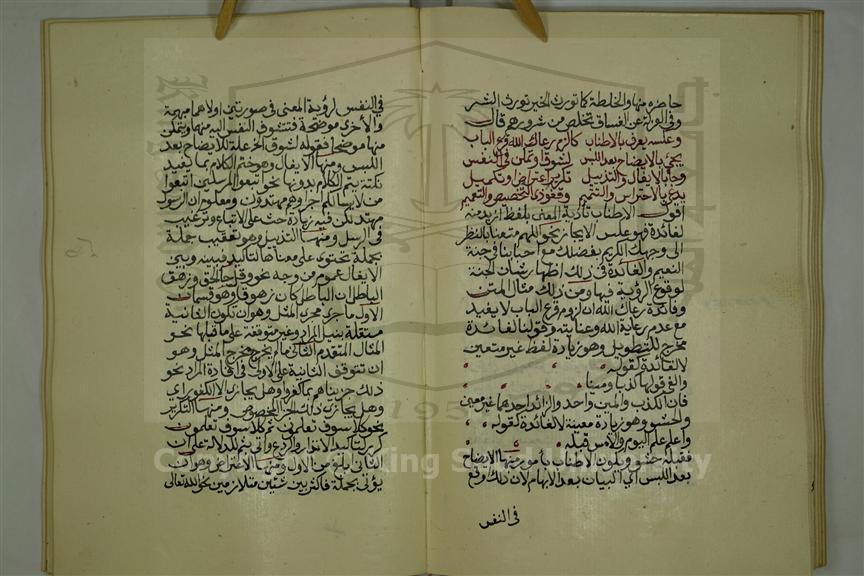 حاضره منها والخلطة كما تورث الخير تورث الشر
وفي العزلة عن الفساق يتخلص من شرورهم قال
وعكسه يعرف بالاطناب كالزم رعاك الله قرع الباب
يجئ بالايضاح بعد اللبس لشوق او تمكن في النفس
وجاء بالايغال والتذييل تكرير اعتراض او تكميل
يدعى بالاحتراس والتتميم وقفو ذي التخصيص والتعميم
اقول الاطناب تادية المعنى بلفظ ازيد منه
لفائدة فهو عكس الايجاز نحو اللهم متعنا بالنظر
الى وجهك الكريم بفضلك مع احبابنا في جنة
النعيم والفائدة في ذلك اظهار شأن الجنة
لوقوع الرؤية فيها ومن ذلك مثال المتن
وفائدة رعاك الله ان لزوم قرع الباب لا يفيد
مع عدم رعاية الله وعنايته وقولنا لفائدة
مخرج للتطويل وهو زيادة لفظ غير متعين
لا لفائدة كقوله
والفى قولها كذبا ومينا
فان الكذب والمين واحد والزائد احدهما غير معين
والحشو وهو زيادة معينة لا لفائدة كقوله
واعلم علم اليوم والامس قبله
فقبله حشو ويكون الاطناب بأمور منها الايضاح
بعد اللبس اي البيان بعد الابهام لان ذلك وقع
في النفس
في النفس لرؤية المعنى في صورتين اولاهما مبهمة
والاخرى موضحة فتتشوق النفس اليه منها ويتمكن
منها موضحا فقوله لشوق الخ علة للايضاح بعد
اللبس ومنها الايغال وهو ختم الكلام بما يفيد
نكتة يتم الكلام بدونها نحو اتبعوا المرسلين اتبعوا
من لا يسألكم اجرا وهم مهتدون ومعلوم ان الرسول
مهتد لكن فيه زيادة حث على الاتباع وترغيب
في الرسل ومنها التذييل وهو تعقيب جملة
بجملة تحتوي على معناها للتأكيد فبينه وبين
الايغال عموم من وجه نحو وقل جاء الحق وزهق
الباطل ان الباطل كان زهوقا وهو قسمان
الاول ما جرى مجرى المثل وهو ان تكون الثانية
مستقلة بنيل المراد وغير متوقفة على ما قبلها نحو
المثال المتقدم الثاني ما لم يخرج مخرج المثل وهو
ان تتوقف الثانية على الاولى في افادة المراد نحو
ذلك جزيناهم بما كفروا وهل يجازى الا الكفور اي
وهل يجازى ذلك الجزاء المخصوص ومنها التكرير
نحو كلا سوف تعلمون ثم كلا سوف تعلمون
كرر لتأكيد الانذار والردع واتى بثم للدلالة على ان
الثاني ابلغ من الاول ومنها الاعتراض وهو ان
يؤتى بجملة فاكثر بين شيئين متلازمين نحو الله تعالى
Copyright © King Saud University
1957